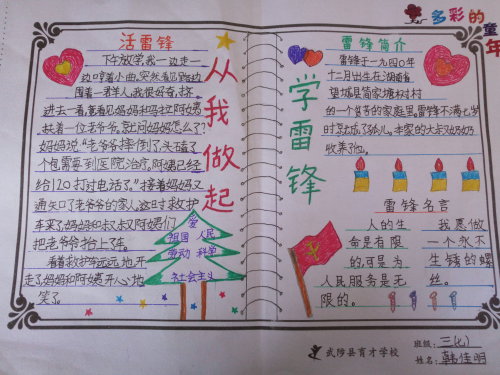 多彩的童年
活雷锋
下午放学,我一边走一
边口拿着小曲,突然看见路边
围着一群人,我很好奇,挤
进去一看,看见妈妈和玛拉阿姨
扶着一位老爷爷,就问妈妈怎么了?
妈妈说:"老爷爷摔倒了,头磕了
个包需要到医院治疗。阿姨已经
给120打过电话了。"接着妈妈又
通知了老爷爷的家人,这时救护
车来了,妈妈和叔叔阿姨们
把老爷爷抬上了车。
看着救护车远远地开
走了妈妈和阿姨开心地
笑了。
从我做起
爱
祖国 人民
劳动 科学
社会主义
学雷锋
雷锋简介
雷锋于一九四0年
十二月出生在湖南省
望城县简家塘村村
的一个贫苦的家庭里。雷锋不满七岁
时就成了孤儿。本家的六叔奶奶
收养了他。
雷锋名言
人的生
命是有限
的,可是为
人民服务是无
限的。
我愿做
一个永不
生锈的螺
丝。
武陟县育才学校
班级: 三(七)
姓名: 韩佳明